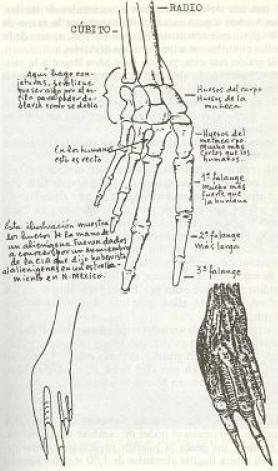 RADIO
CÚBITO
Aquí hago con-
jeturas, pero tiene
que ser algo por el es-
tilo para poder do-
blarse como se dobla.
Huesos del carpo
Huesos de la
muñeca
En los humanos
esto es recto
Huesos del
metacarpo.
Mucho más
cortos que los
humanos.
1ª falange
Mucho más
fuerte que
la humana
2ª falange
Más larga
3ª falange
Esta ilustración muestra
los huesos de la mano de
un alienígena. Fueron dados
a conocer por un exmiembro
de la CIA que dijo haber visto
al alienígena en un estrella-
miento en N. México.